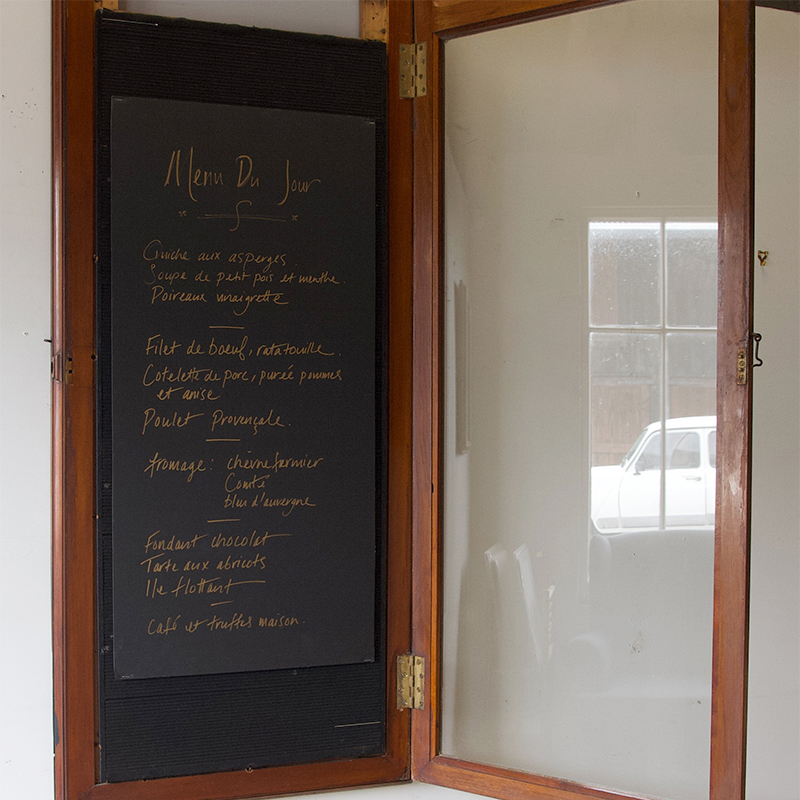 Menu Du Jour
Quiche aux asperges
Soupe de petit pois et menthe.
Poireaux vinaigrette
Filet de boeuf, ratatouille.
Cotelette de porc, purée pommes
et anise
Poulet Provençale.
fromage: chèvre fermier
Comté
bleu d'auvergne
Fondant chocolat
Tarte aux abricots
Ile flottant
Café et truffes maison.